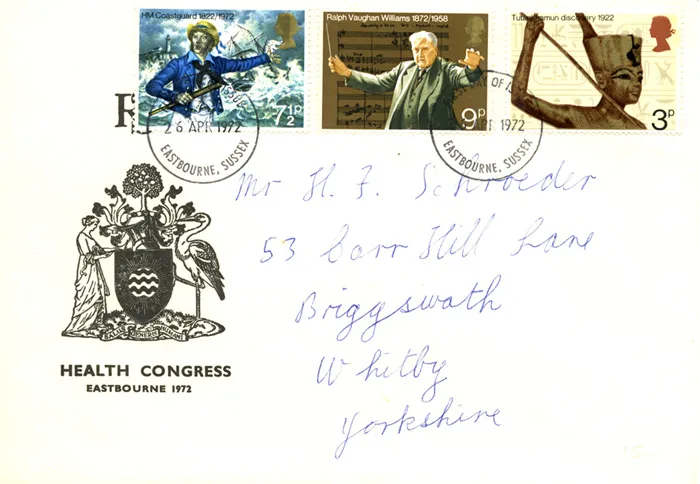 HM Coastguard 1822/1972
7½p
Ralph Vaughan Williams 1872/1958
9p
Tutankhamun discovery 1922
3p
26 APR 1972
EASTBOURNE, SUSSEX
DAY OF
APR 1972
EASTBOURNE, SUSSEX
Mr H. F. Schroeder
53 Carr Hill Lane
Briggswath
Whitby
Yorkshire
HEALTH CONGRESS
EASTBOURNE 1972